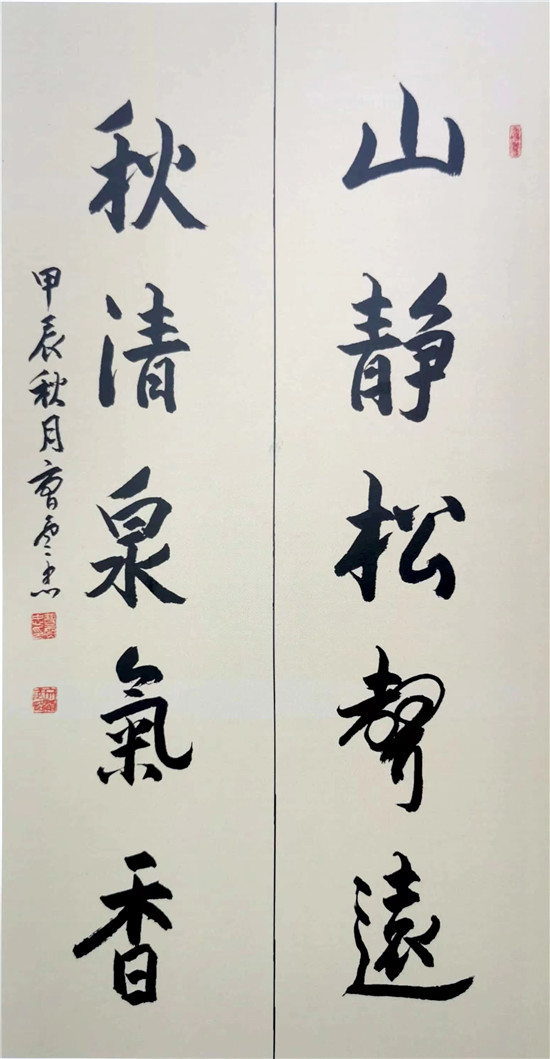 山靜松聲遠
秋清泉氣香
甲辰秋月